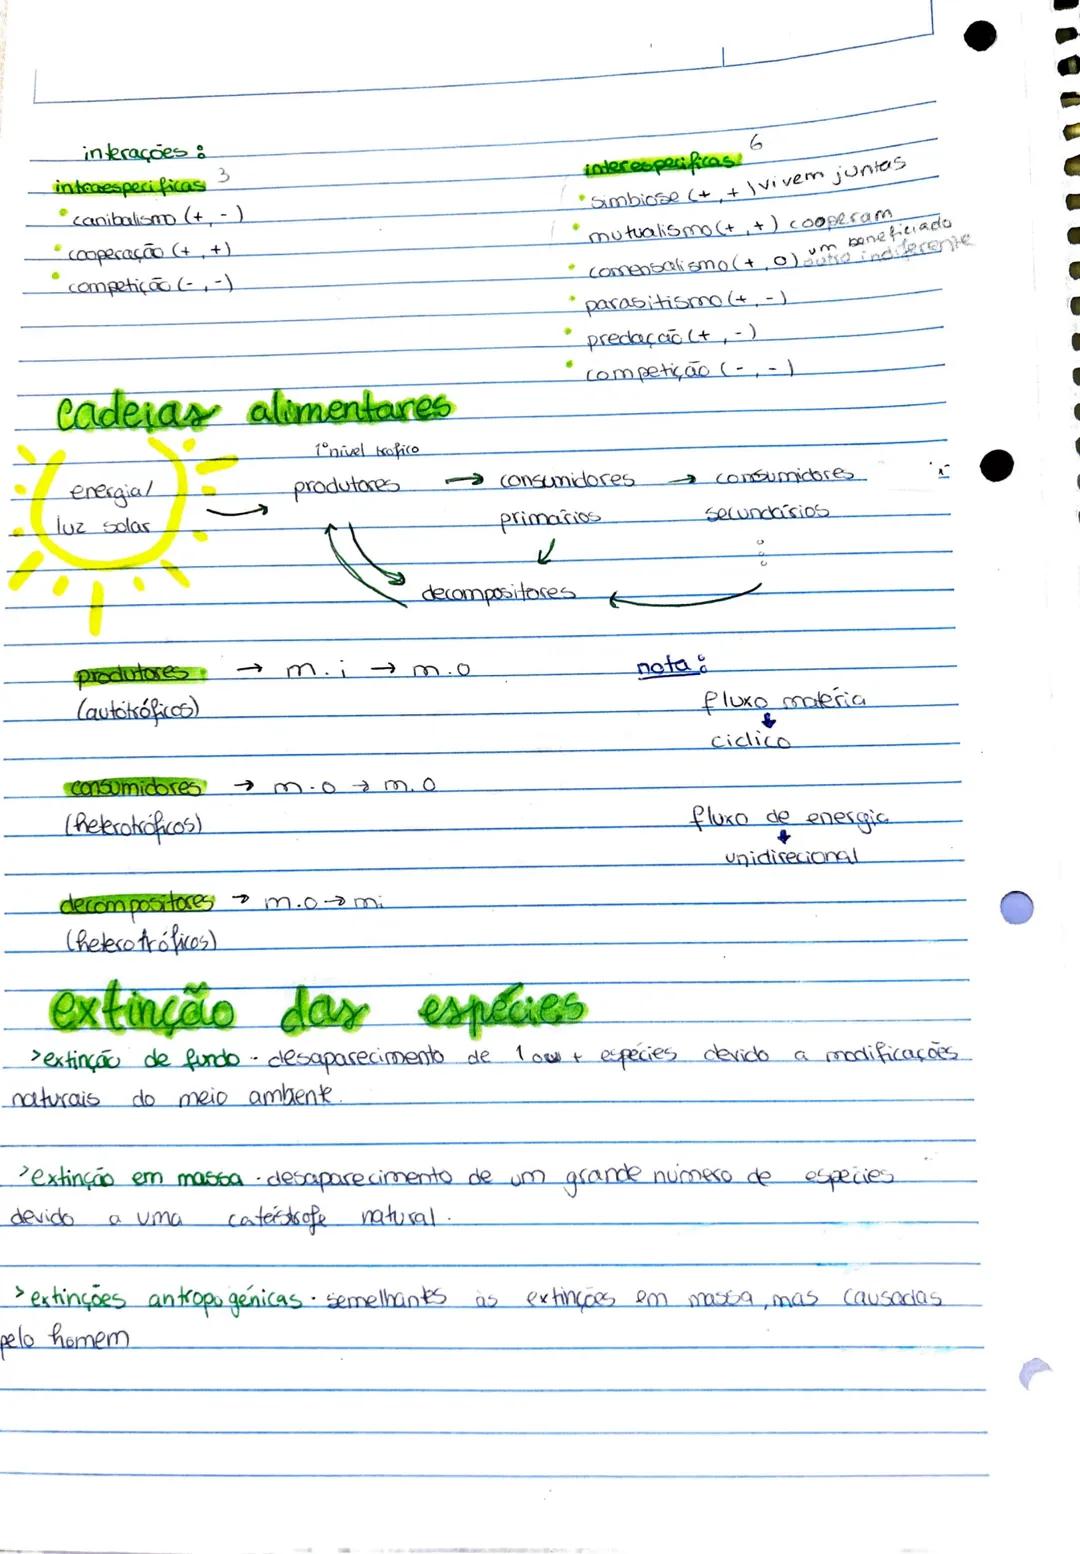 interações:
intraespecificas 3
canibalismo (+, -)
cooperação (+, +)
competição (-, -)
interespecificas: 6
simbiose (+, +) vivem juntas
mutualismo (+, +) cooperam
comensalismo (+, 0) um beneficiado
outro indiferente
parasitismo (+, -)
predação (+, -)
competição (-, -)
cadeias alimentares
energia/
luz solar
1º nível trofico
produtores → consumidores → consumidores
primários secundários
decompositores
produtores → m.i → m.o
(autotróficos)
nota:
fluxo matéria
ciclico
consumidores → m.o → m.o
(heterotróficos)
fluxo de energia
unidirecional
decompositores → m.o → mi
(heterotróficos)
extinção das espécies
>extinção de fundo - desaparecimento de 1 ou + espécies devido a modificações
naturais do meio ambiente.
>extinção em massa - desaparecimento de um grande número de espécies
devido a uma catástrofe natural.
>extinções antropogénicas - semelhantes às extinções em massa, mas causadas
pelo homem